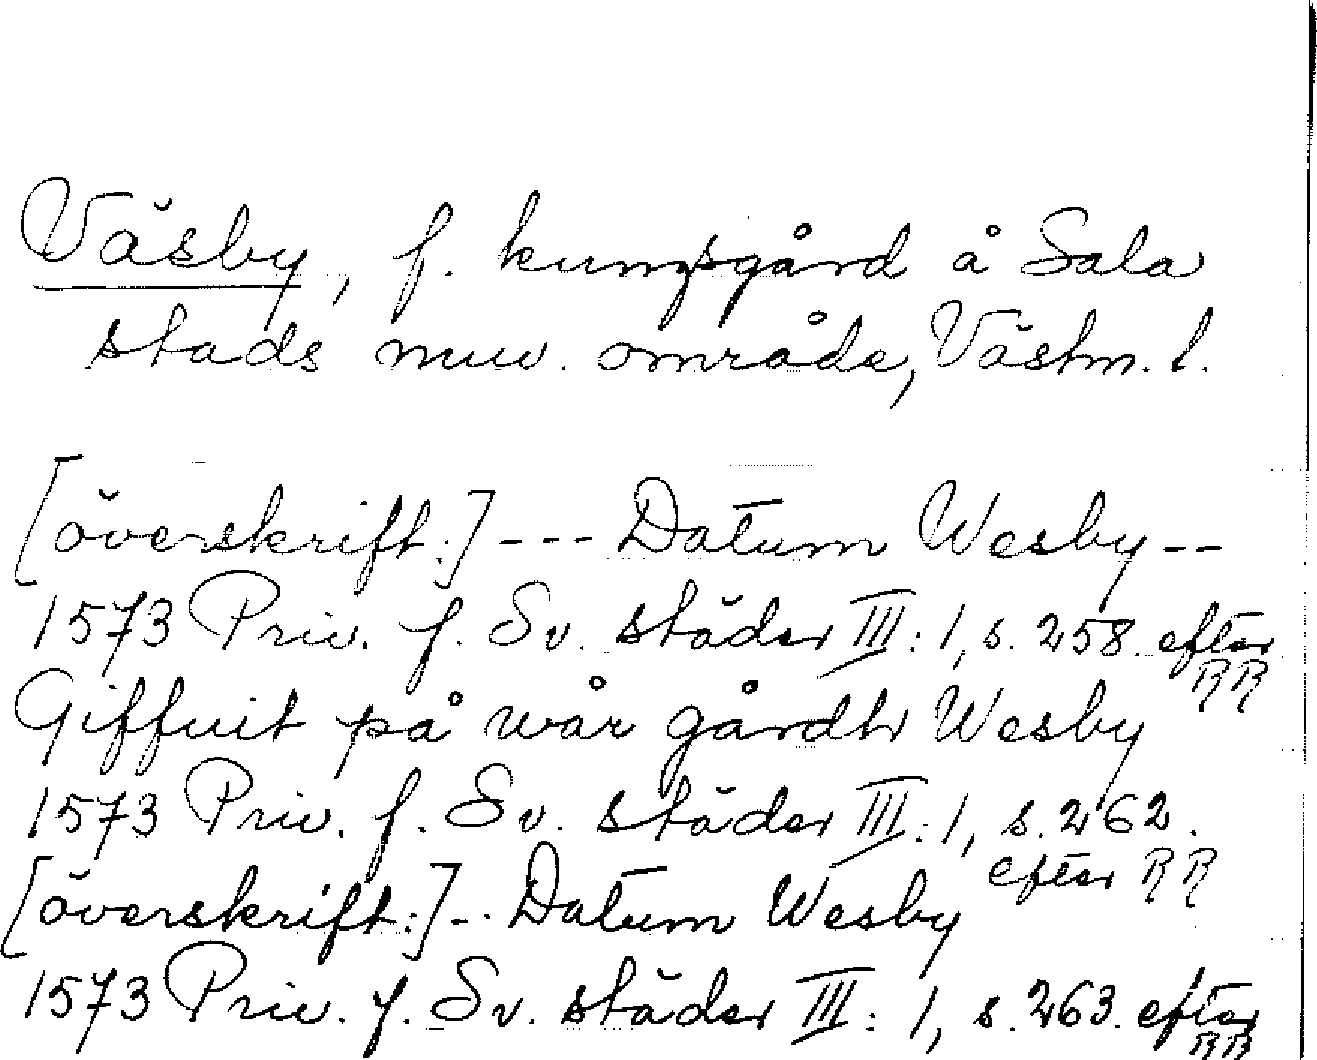 Väsby, f. kungsgård å Sala
stads nuv. område, Västm. l.
[överskrift:] --- Datum Wesby --
1573 Priv. f. Sv. städer III: 1, s. 258. efter
RR
Giffuit på wår gårdh Wesby
1573 Priv. f. Sv. städer III: 1, s. 262.
efter RR
[överskrift:] -- Datum Wesby
1573 Priv. f. Sv. städer III: 1, s. 263. efter
RR